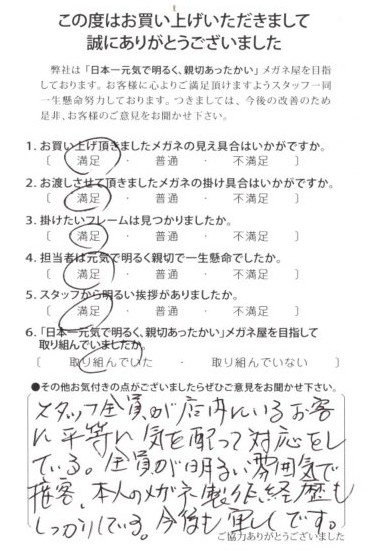 この度はお買い上げいただきまして
誠にありがとうございました
弊社は「日本一元気で明るく、親切あったかい」メガネ屋を目指
しております。お客様に心よりご満足頂けますようスタッフ一同
一生懸命努力しております。つきましては、今後の改善のため
是非、お客様のご意見をお聞かせ下さい。
1. お買い上げ頂きましたメガネの見え具合はいかがですか。
〔 満足 ・ 普通 ・ 不満足 〕
2. お渡しさせて頂きましたメガネの掛け具合はいかがですか。
〔 満足 ・ 普通 ・ 不満足 〕
3. 掛けたいフレームは見つかりましたか。
〔 満足 ・ 普通 ・ 不満足 〕
4. 担当者は元気で明るく親切で一生懸命でしたか。
〔 満足 ・ 普通 ・ 不満足 〕
5. スタッフから明るい挨拶がありましたか。
〔 満足 ・ 普通 ・ 不満足 〕
6. 「日本一元気で明るく、親切あったかい」メガネ屋を目指して
取り組んでいましたか。
〔 取り組んでいた ・ 取り組んでいない 〕
●その他お気付きの点がございましたらぜひご意見をお聞かせ下さい。
スタッフ全員が店内にいるお客
に平等に気を配って対応をし
ている。全員が明るい雰囲気で
接客、本人のメガネ製作経歴も
しっかりしている。今後も宜しくです。
ご協力ありがとうございました